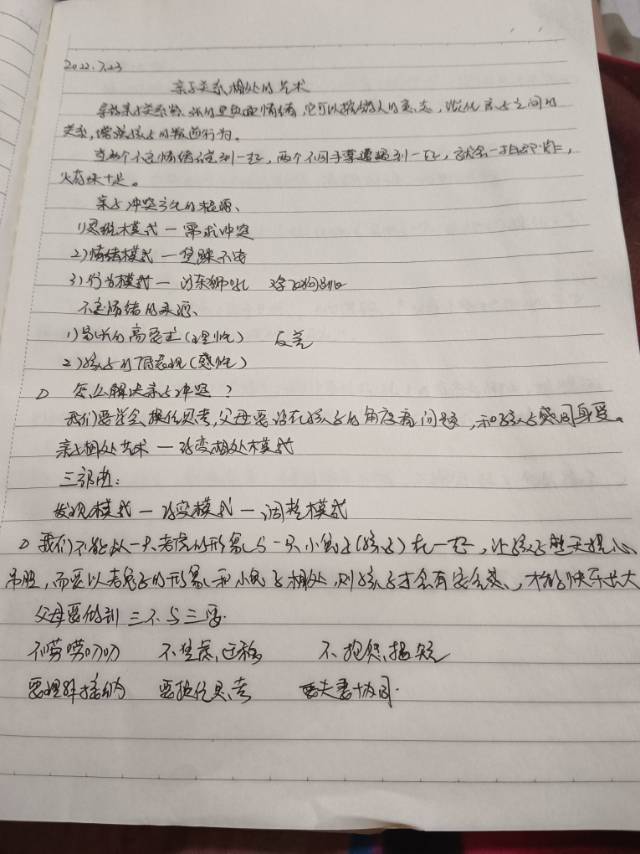 2022.7.23
亲子关系相处的艺术
导致亲子关系的是负面情绪,它可以控制人的意志,激化亲子之间的
关系,增强孩子的叛逆行为。
当两个不良情绪碰到一起,两个不同手掌遭遇到一起,就会一拍即炸,
火药味十足。
亲子冲突产生的根源、
1)思维模式—需求冲突
2)情绪模式—
3)行为模式—河东狮吼
不良情绪的来源、
1)家长的高要求(理性) 反差
2)孩子的低表现(感性)
怎么解决亲子冲突?
我们要学会换位思考,父母要站在孩子的角度看问题,和孩子感同身受。
亲子相处艺术—改变相处模式
三部曲:
发现模式—改变模式—调整模式
我们不能以一只老虎的形象与一只小兔子(孩子)在一起,让孩子整天提心
吊胆,而要以老兔子的形象和小兔子相处,则孩子才会有安全感,才能快乐长大
父母要做到三不与三要.
不唠唠叨叨 不焦虑,迁移 不抱怨,揭短
要理解接纳 要换位思考 要夫妻协同.